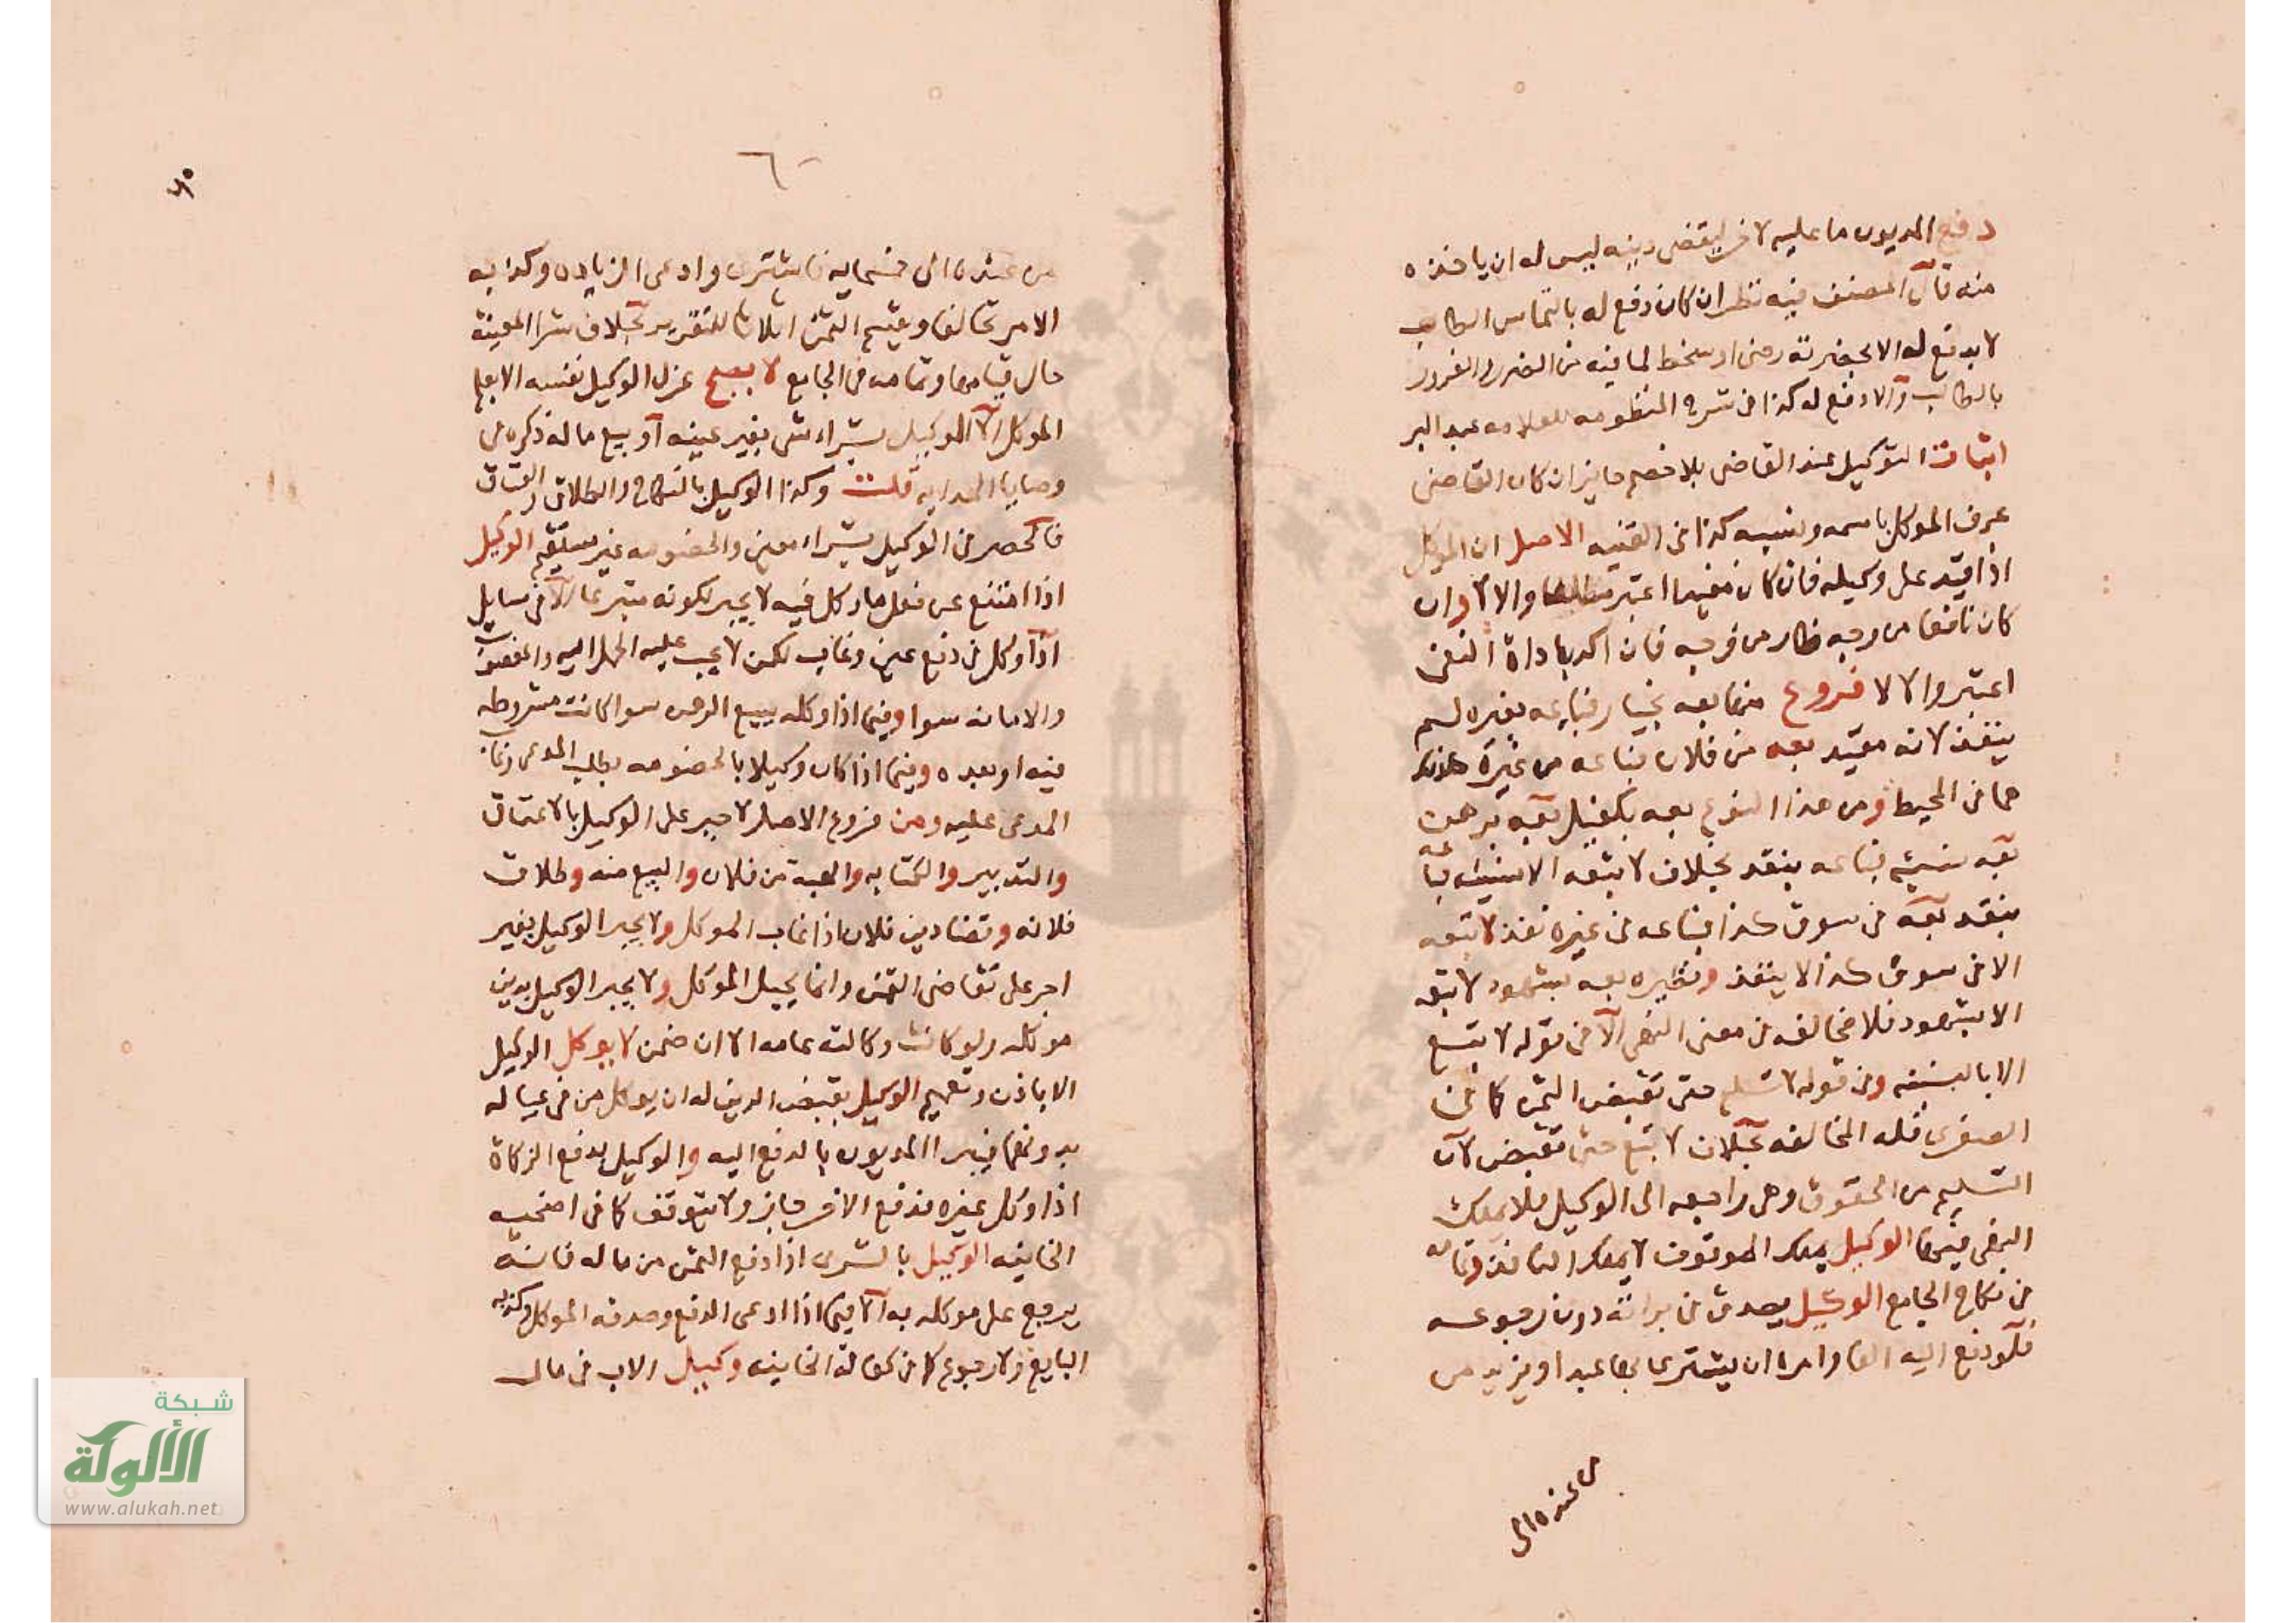 دفع المديون ما عليه لاخر ليقضى دينه ليس له ان ياخذه
منه قال المصنف فيه نظر ان كان دفع له بالتماس الطالب
لا يدفع له الا بحضرته رضى او سخط لما فيه من الضرر والغرور
بالطالب والا دفع له كذا فى شرح المنظومه للعلامه عبد البر
اثبات التوكيل عند القاضى بلا خصم جايز ان كان القاضى
عرف الموكل باسمه ونسبه كذا فى القنيه الاصل ان الموكل
اذا قيد على وكيله فان كان مفيدا اعتبر مطلقا والا لا وان
كان نافعا من وجه ضار من وجه فان اكد باداة النفى
اعتبر والا لا فروع منها بعه بخيار فباعه بغيره لم
ينفذ لانه مقيد بعه من فلان فباعه من غيره
هما فى المحيط ومن هذا النوع بعه بكفيل بعه برهن
بعه نسيئه فباعه بنقد بخلاف لا تبعه الا نسيئه فباعه
بنقد بعه فى سوق كذا فباعه فى غيره نفذ لا تبعه
الا فى سوق كذا لا ينفذ ونظيره بعه بشهود لا تبعه
الا بشهود فلا مخالفه فى معنى النهى الا فى قوله لا تبع
الا بالنسئه وفى قوله لا تسلم حتى تقبض الثمن كما فى
الصغرى فله المخالفه بخلاف لا تبع حتى تقبض لان
التسليم من الحقوق وهى راجعه الى الوكيل فلا يملك
النهى فيها الوكيل يملك الموقوف لا يملك النافذ وتمامه
فى نكاح الجامع الوكيل يصدق فى براته دون رجوعه
فلو دفع اليه الفا وامره ان يشترى بها عبدا ويزيد من
من عنده الى
٦٠
من عنده الى خمسمايه فاشترى وادعى الزياده وكذبه
الامر تحالفا ويقسم الثمن اثلاثا للتقرير بخلاف شرا المعينه
حال قيامها وتمامه فى الجامع لا يصح عزل الوكيل نفسه الا بعلم
الموكل الا الوكيل بشراء شى بغير عينه او بيع ماله ذكره فى
وصايا الهدايه قلت وكذا الوكيل بالنكاح والطلاق والعتاق
فالحصر فى الوكيل بشراء معين والخصومه غير مستقيم الوكيل
اذا امتنع عن فعل ما وكل فيه لا يجبر لكونه متبرعا الا فى مسايل
اذا وكل فى دفع عين وغاب لكن لا يجب عليه الحمل اليه والمغصوب
والامانه سوا وفيما اذا وكله ببيع الرهن سوا كانت مشروطه
فيه او بعده وفيما اذا كان وكيلا بالخصومه بطلب المدعى وغاب
المدعى عليه ومن فروع الاصل لا جبر على الوكيل بالاعتاق
والتدبير والكتابه والهبة من فلان والبيع منه وطلاق
فلانه وقضا دين فلان اذا غاب الموكل ولا يجبر الوكيل بغير
اجر على تقاضى الثمن وانما يحيل الموكل ولا يجبر الوكيل بدين
موكله ولو كانت وكالته عامه الا ان ضمن لا يوكل الوكيل
الا باذن وتعميم الوكيل بقبض الدين له ان يوكل من فى عياله
بدونهما فيبرا المديون بالدفع اليه والوكيل بدفع الزكاة
اذا وكل غيره فدفع الاخر جاز ولا يتوقف كما فى اضحيه
الخانيه الوكيل بالشرى اذا دفع الثمن من ماله فانه
يرجع على موكله به الا فيما اذا ادعى الدفع وصدقه الموكل وكذبه
البايع فلا رجوع كما فى كفالة الخانيه وكيل الاب فى مال
شبكة
الألوكة
www.alukah.net